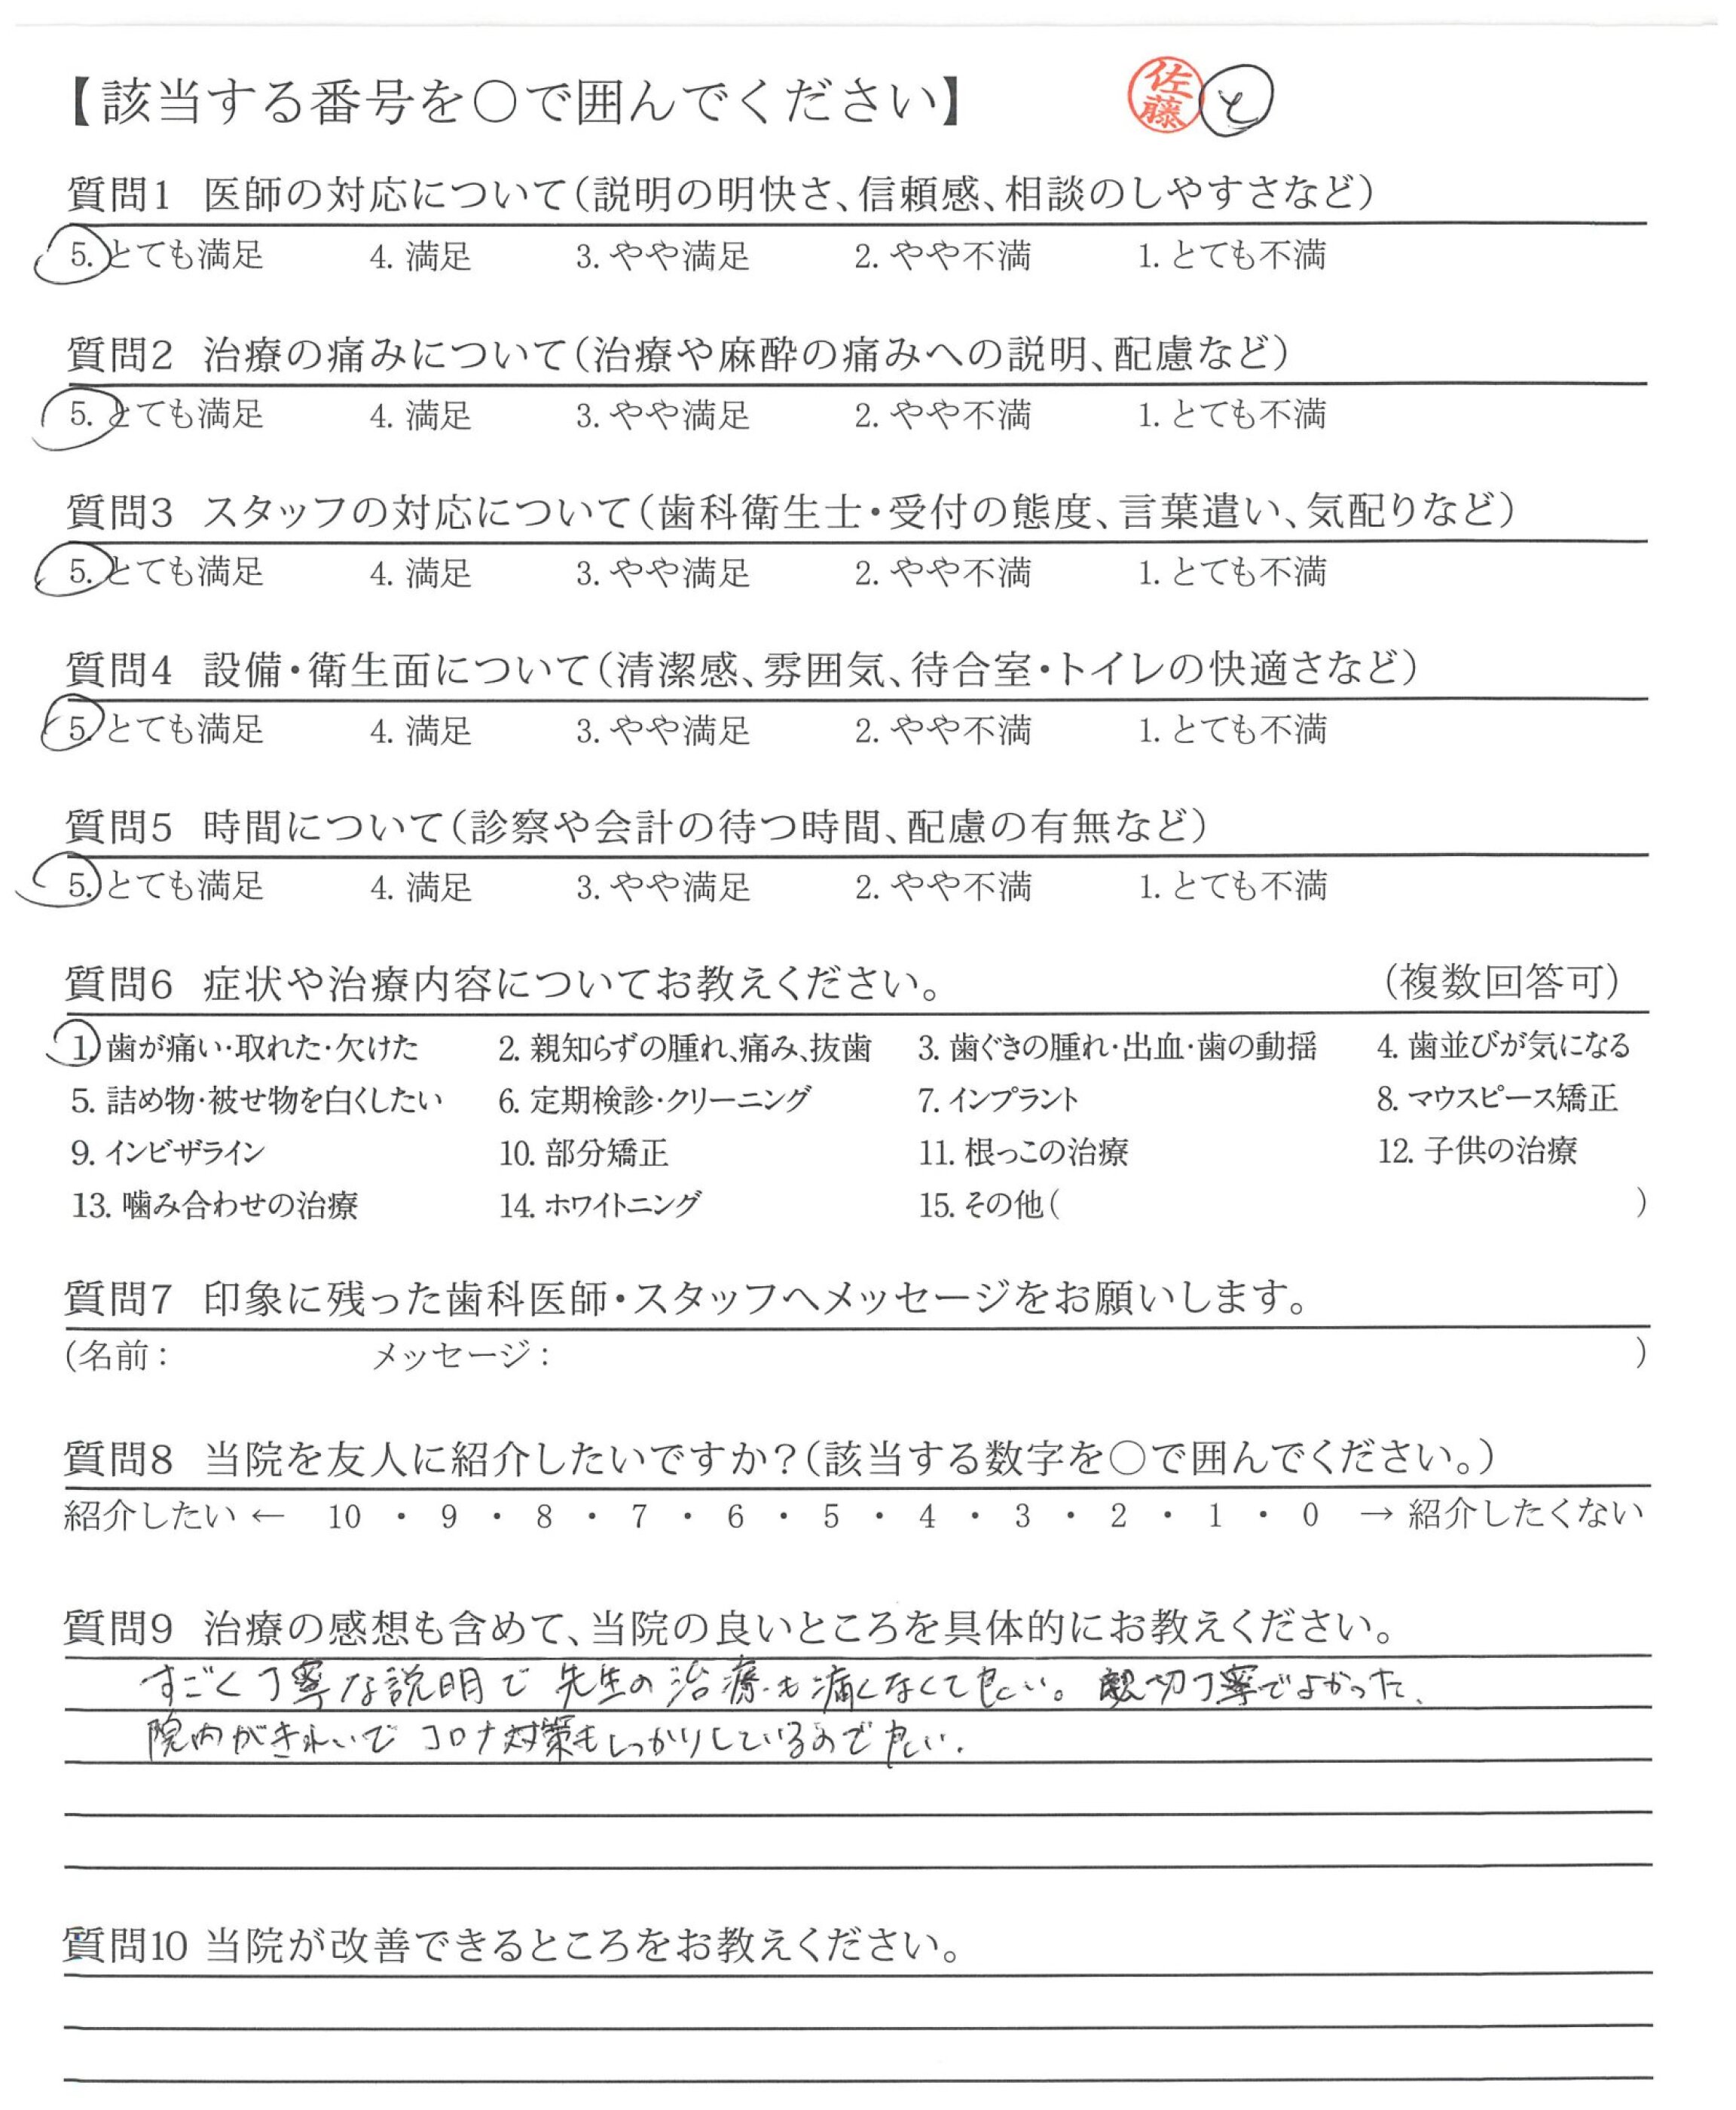 【該当する番号を○で囲んでください】 佐藤 と
質問1 医師の対応について(説明の明快さ、信頼感、相談のしやすさなど)
5. とても満足 4. 満足 3. やや満足 2. やや不満 1. とても不満
質問2 治療の痛みについて(治療や麻酔の痛みへの説明、配慮など)
5. とても満足 4. 満足 3. やや満足 2. やや不満 1. とても不満
質問3 スタッフの対応について(歯科衛生士・受付の態度、言葉遣い、気配りなど)
5. とても満足 4. 満足 3. やや満足 2. やや不満 1. とても不満
質問4 設備・衛生面について(清潔感、雰囲気、待合室・トイレの快適さなど)
5. とても満足 4. 満足 3. やや満足 2. やや不満 1. とても不満
質問5 時間について(診察や会計の待つ時間、配慮の有無など)
5. とても満足 4. 満足 3. やや満足 2. やや不満 1. とても不満
質問6 症状や治療内容についてお教えください。 (複数回答可)
1. 歯が痛い・取れた・欠けた 2. 親知らずの腫れ、痛み、抜歯 3. 歯ぐきの腫れ・出血・歯の動揺 4. 歯並びが気になる
5. 詰め物・被せ物を白くしたい 6. 定期検診・クリーニング 7. インプラント 8. マウスピース矯正
9. インビザライン 10. 部分矯正 11. 根っこの治療 12. 子供の治療
13. 噛み合わせの治療 14. ホワイトニング 15. その他( )
質問7 印象に残った歯科医師・スタッフへメッセージをお願いします。
(名前: メッセージ: )
質問8 当院を友人に紹介したいですか?(該当する数字を○で囲んでください。)
紹介したい ← 10 ・ 9 ・ 8 ・ 7 ・ 6 ・ 5 ・ 4 ・ 3 ・ 2 ・ 1 ・ 0 → 紹介したくない
質問9 治療の感想も含めて、当院の良いところを具体的にお教えください。
すごく丁寧な説明で先生の治療も痛くなくて良い。親切丁寧でよかった、
院内がきれいでコロナ対策もしっかりしているので良い.
質問10 当院が改善できるところをお教えください。